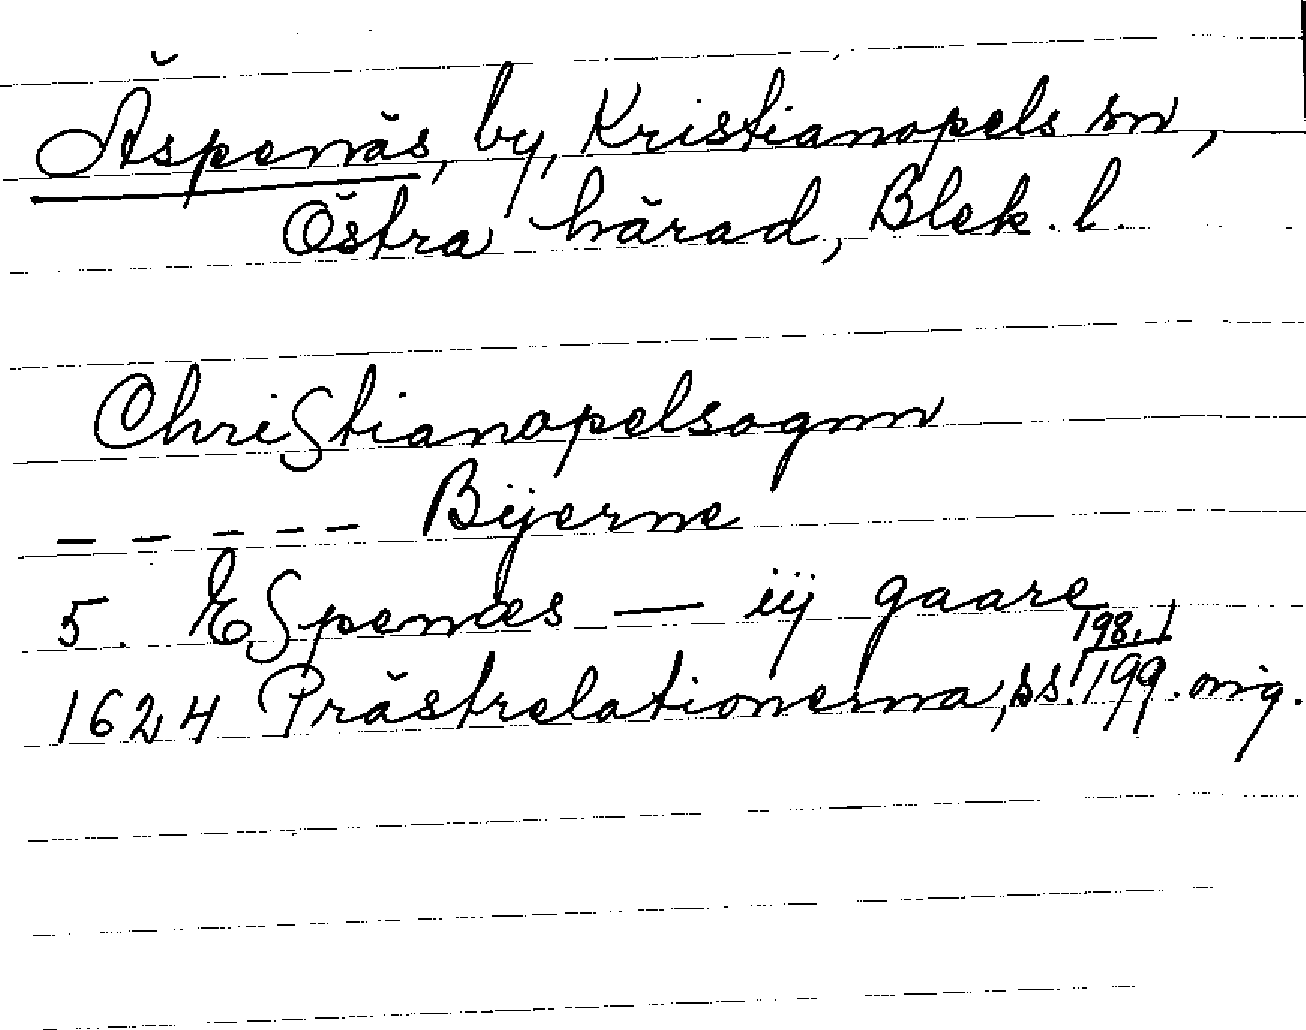 Äspenäs, by, Kristianopels sn,
Östra härad, Blek. l.
Christianopelsognn
— — — — — Bÿerne
5. Espenæs — iij gaare
1624 Prästrelationerna, ss. 198, 199. orig.